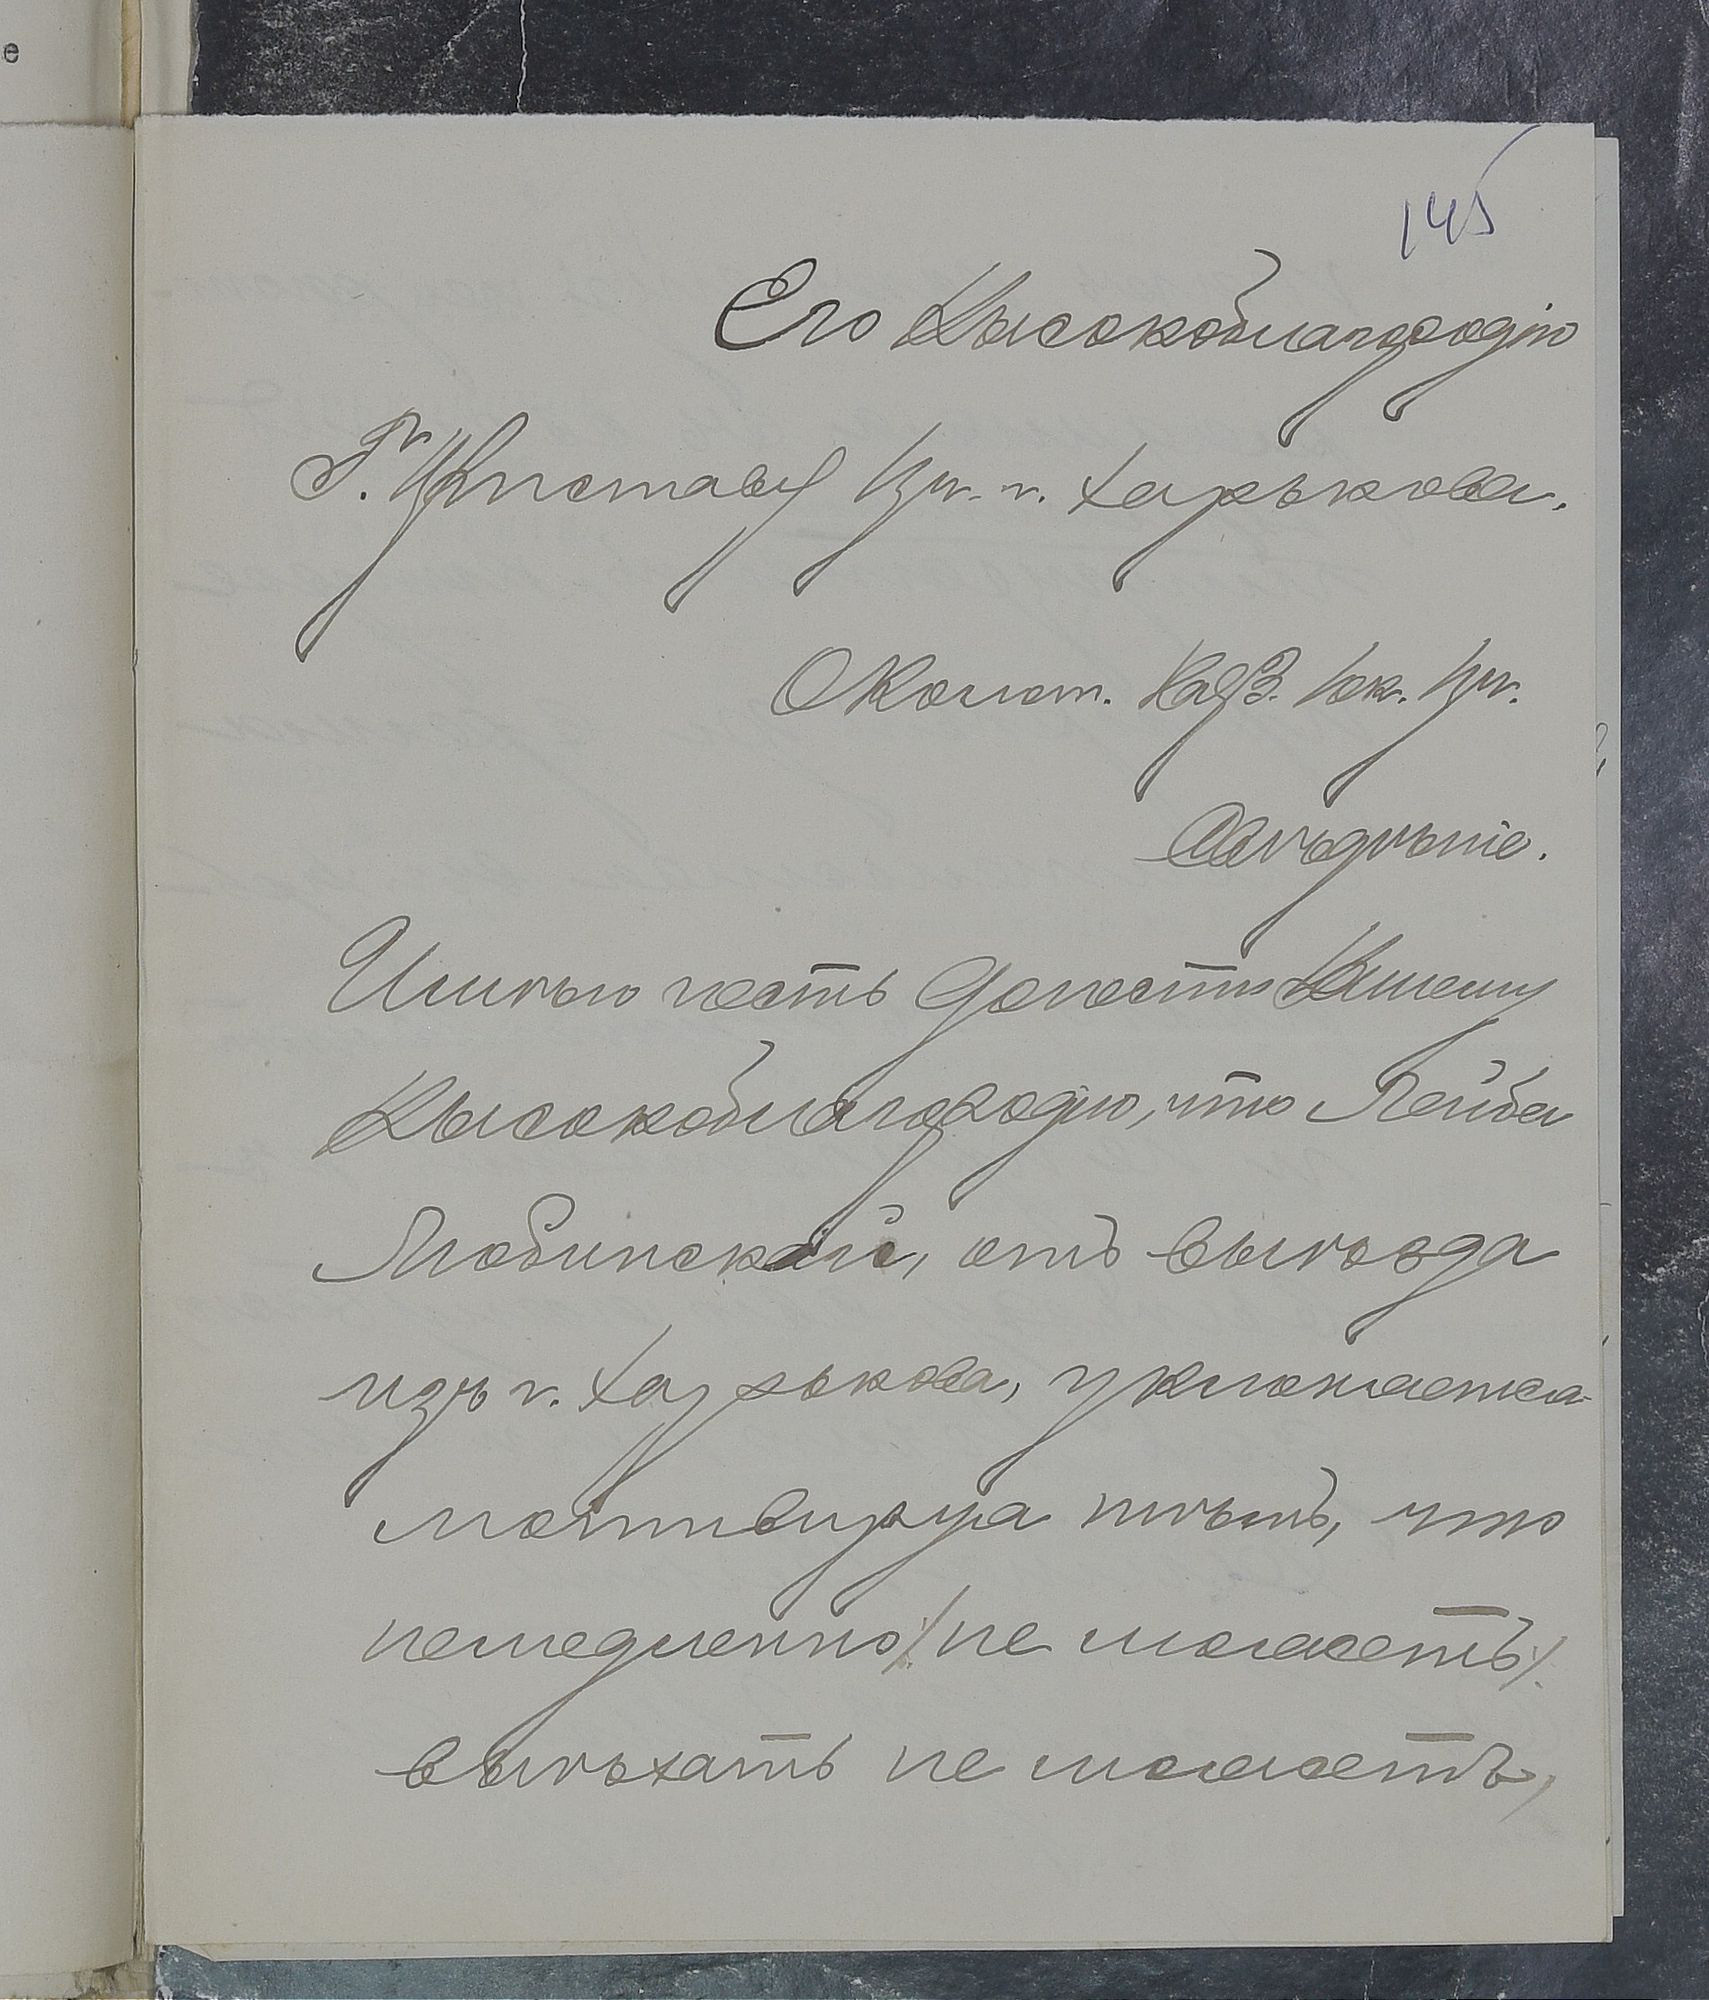 е
145
Его Высокоблагородію
Г. Приставу уч. г. Харькова.
Околот. Надз. уч.
Имѣю честь донести Вашему
Высокоблагородію, что Лейба
Любинскій, отъ выѣзда
изъ г. Харькова, уклоняется
мотивируя тѣмъ, что
немедленно /не можетъ/
выѣхать не можетъ,